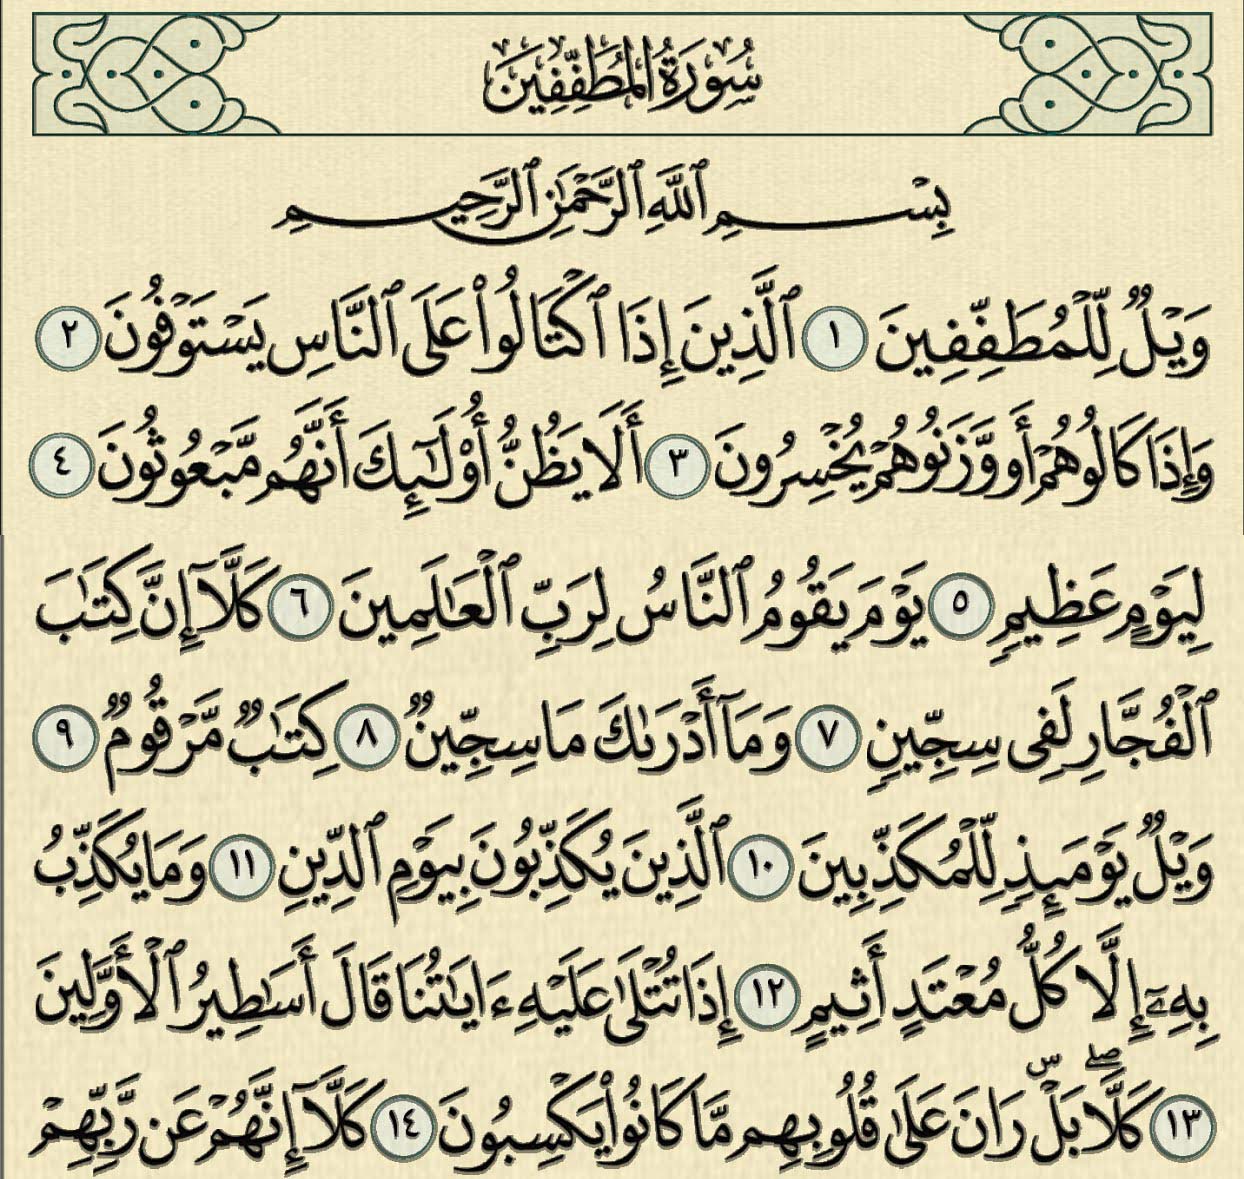 سُورَةُ المُطَفِّفِينَ
بِسْمِ ٱللَّهِ ٱلرَّحْمَٰنِ ٱلرَّحِيمِ
وَيْلٌ لِّلْمُطَفِّفِينَ ١ ٱلَّذِينَ إِذَا ٱكْتَالُوا۟ عَلَى ٱلنَّاسِ يَسْتَوْفُونَ ٢
وَإِذَا كَالُوهُمْ أَو وَّزَنُوهُمْ يُخْسِرُونَ ٣ أَلَا يَظُنُّ أُو۟لَٰٓئِكَ أَنَّهُم مَّبْعُوثُونَ ٤
لِيَوْمٍ عَظِيمٍ ٥ يَوْمَ يَقُومُ ٱلنَّاسُ لِرَبِّ ٱلْعَٰلَمِينَ ٦ كَلَّآ إِنَّ كِتَٰبَ
ٱلْفُجَّارِ لَفِى سِجِّينٍ ٧ وَمَآ أَدْرَىٰكَ مَا سِجِّينٌ ٨ كِتَٰبٌ مَّرْقُومٌ ٩
وَيْلٌ يَوْمَئِذٍ لِّلْمُكَذِّبِينَ ١٠ ٱلَّذِينَ يُكَذِّبُونَ بِيَوْمِ ٱلدِّينِ ١١ وَمَا يُكَذِّبُ
بِهِۦٓ إِلَّا كُلُّ مُعْتَدٍ أَثِيمٍ ١٢ إِذَا تُتْلَىٰ عَلَيْهِ ءَايَٰتُنَا قَالَ أَسَٰطِيرُ ٱلْأَوَّلِينَ
١٣ كَلَّا ۖ بَلْ ۜ رَانَ عَلَىٰ قُلُوبِهِم مَّا كَانُوا۟ يَكْسِبُونَ ١٤ كَلَّآ إِنَّهُمْ عَن رَّبِّهِمْ